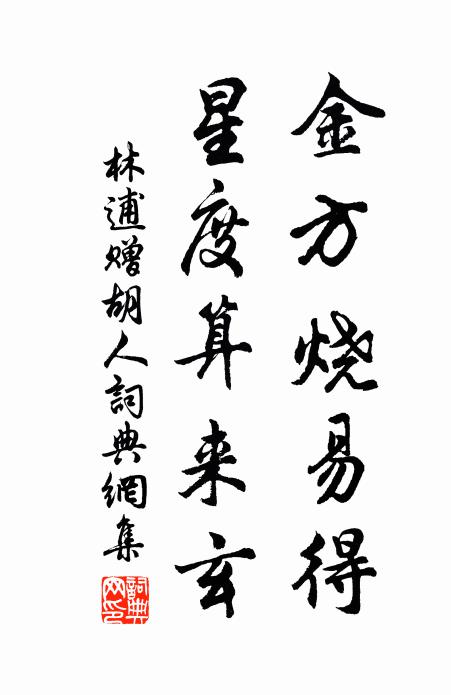 金方烧易得
星度算来玄
林逋赠胡人詞典網集
詞典网印